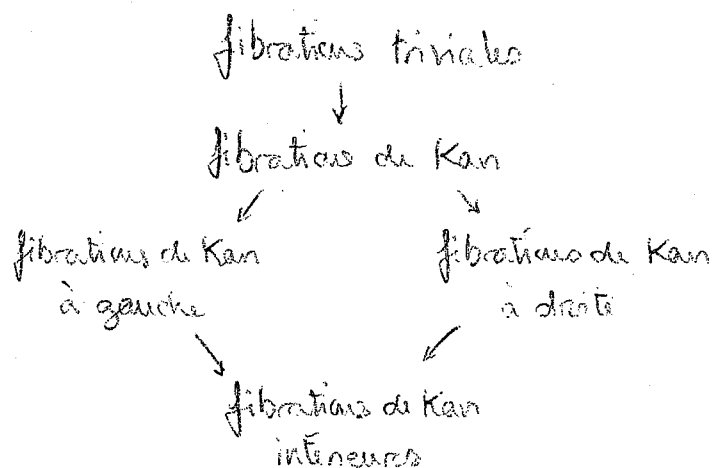 fibrations triviales
fibrations de Kan
fibrations de Kan
à gauche
fibrations de Kan
à droite
fibrations de Kan
intérieurs